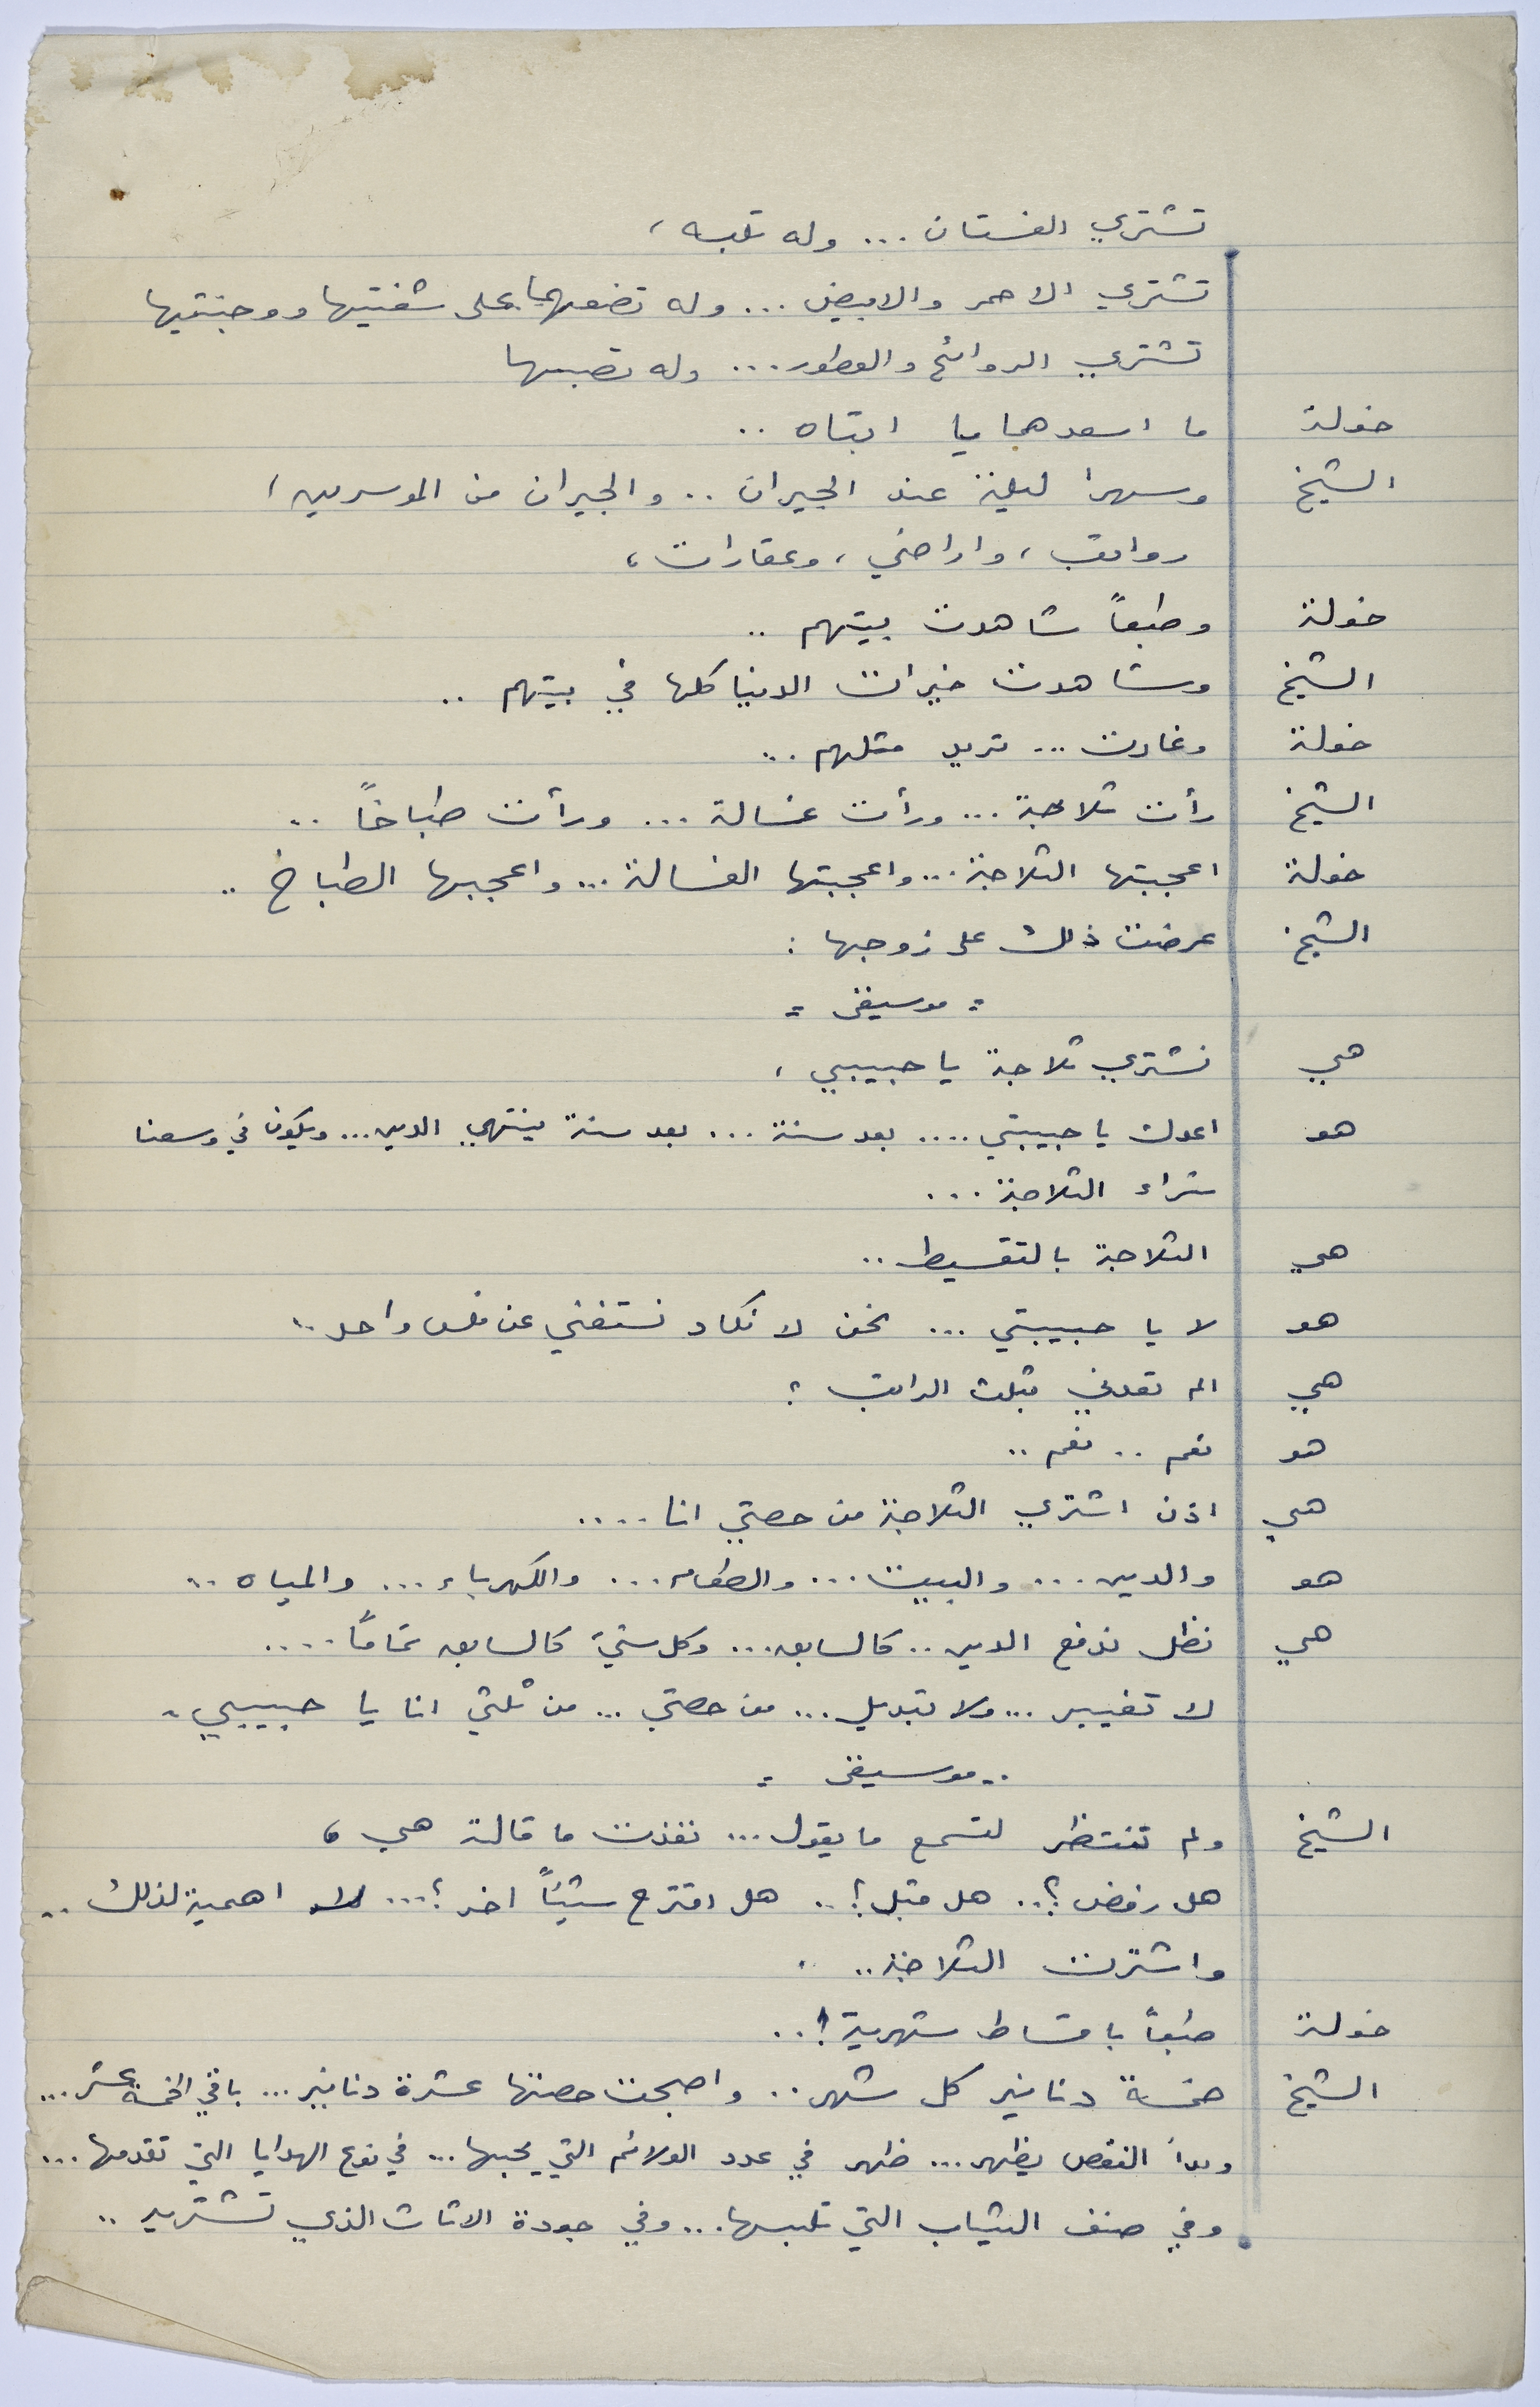 تشتري الفستان ... وله تلبسه ،
تشتري الاحمر والابيض ... وله تضعهما على شفتيها ووجنتيها
تشتري الروائح والعطور ... وله تصبها
خولة ما اسعدهما يا ابتاه ..
الشيخ وسهرا ليلة عند الجيران .. والجيران من الموسرين ،
رواتب ، واراضي ، وعقارات ،
خولة وطبعاً شاهدت بيتهم ..
الشيخ وشاهدت خيرات الدنيا كلها في بيتهم ..
خولة وغارت ... تريد مثلهم ..
الشيخ رأت ثلاجة ... ورأت غسالة ... ورأت طباخاً ..
خولة اعجبتها الثلاجة ... واعجبتها الغسالة ... واعجبها الطباخ ..
الشيخ عرضت ذلك على زوجها :
= موسيقى =
هي نشتري ثلاجة يا حبيبي ،
هو اعدك يا حبيبتي .... بعد سنة ... بعد سنة ينتهي الدين ... ويكون في وسعنا
شراء الثلاجة ...
هي الثلاجة بالتقسيط ..
هو لا يا حبيبتي ... نحن لا نكاد نستغني عن فلس واحد ..
هي الم تعدني بثلث الراتب ؟
هو نعم .. نعم ..
هي اذن اشتري الثلاجة من حصتي انا ....
هو والدين ... والبيت ... والطعام ... والكهرباء ... والمياه ..
هي نظل ندفع الدين .. كالسابق ... وكل شيء كالسابق تماماً ....
لا تغيير ... ولا تبديل ... من حصتي ... من ثلثي انا يا حبيبي .
= موسيقى =
الشيخ ولم تنتظر لتسمع ما يقول ... نفذت ما قالته هي ،
هل رفض ؟.. هل قبل ؟.. هل اقترح شيئاً اخر ؟... لا اهمية لذلك ..
واشترت الثلاجة ..
خولة طبعاً باقساط شهرية !..
الشيخ خمسة دنانير كل شهر .. واصبحت حصتها عشرة دنانير ... باقي الخمسة عشر ...
وبدأ النقص يظهر ... ظهر في عدد الولائم التي يحبها ... في نوع الهدايا التي تقدمها ...
وفي صنف الثياب التي تلبسها ... وفي جودة الاثاث الذي تشتريه ..